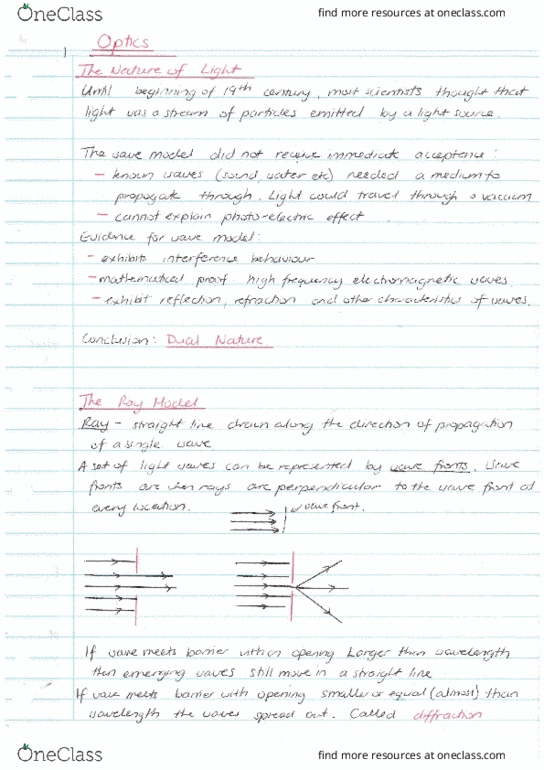 OneClass
find more resources at oneclass.com
Optics
1
The Nature of Light
Until beginning of 19th century, most scientists thought that
light was a stream of particles emitted by a light source.
The wave model did not receive immediate acceptance:
- known waves (sound, water etc) needed a medium to
propagate through. Light could travel through a vacuum
- cannot explain photo-electric effect
Evidence for wave model:
- exhibits interference behaviour
- mathematical proof high frequency electromagnetic waves.
- exhibit reflection, refraction and other characteristics of waves.
Conclusion: Dual Nature
The Ray Model
Ray - straight line drawn along the direction of propagation
of a single wave
A set of light waves can be represented by wave fronts. Wave
fronts are when rays are perpendicular to the wave front at
every location.
wave front.
If wave meets barrier with an opening larger than wavelength
then emerging waves still move in a straight line
If wave meets barrier with opening smaller or equal (almost) than
wavelength the waves spread out. Called diffraction
OneClass
find more resources at oneclass.com